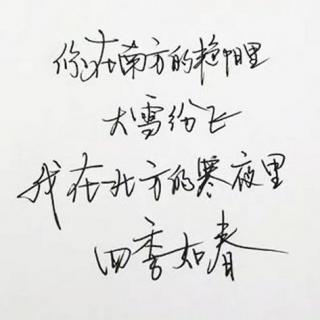 你在南方的艳阳里
大雪纷飞
我在北方的寒夜里
四季如春